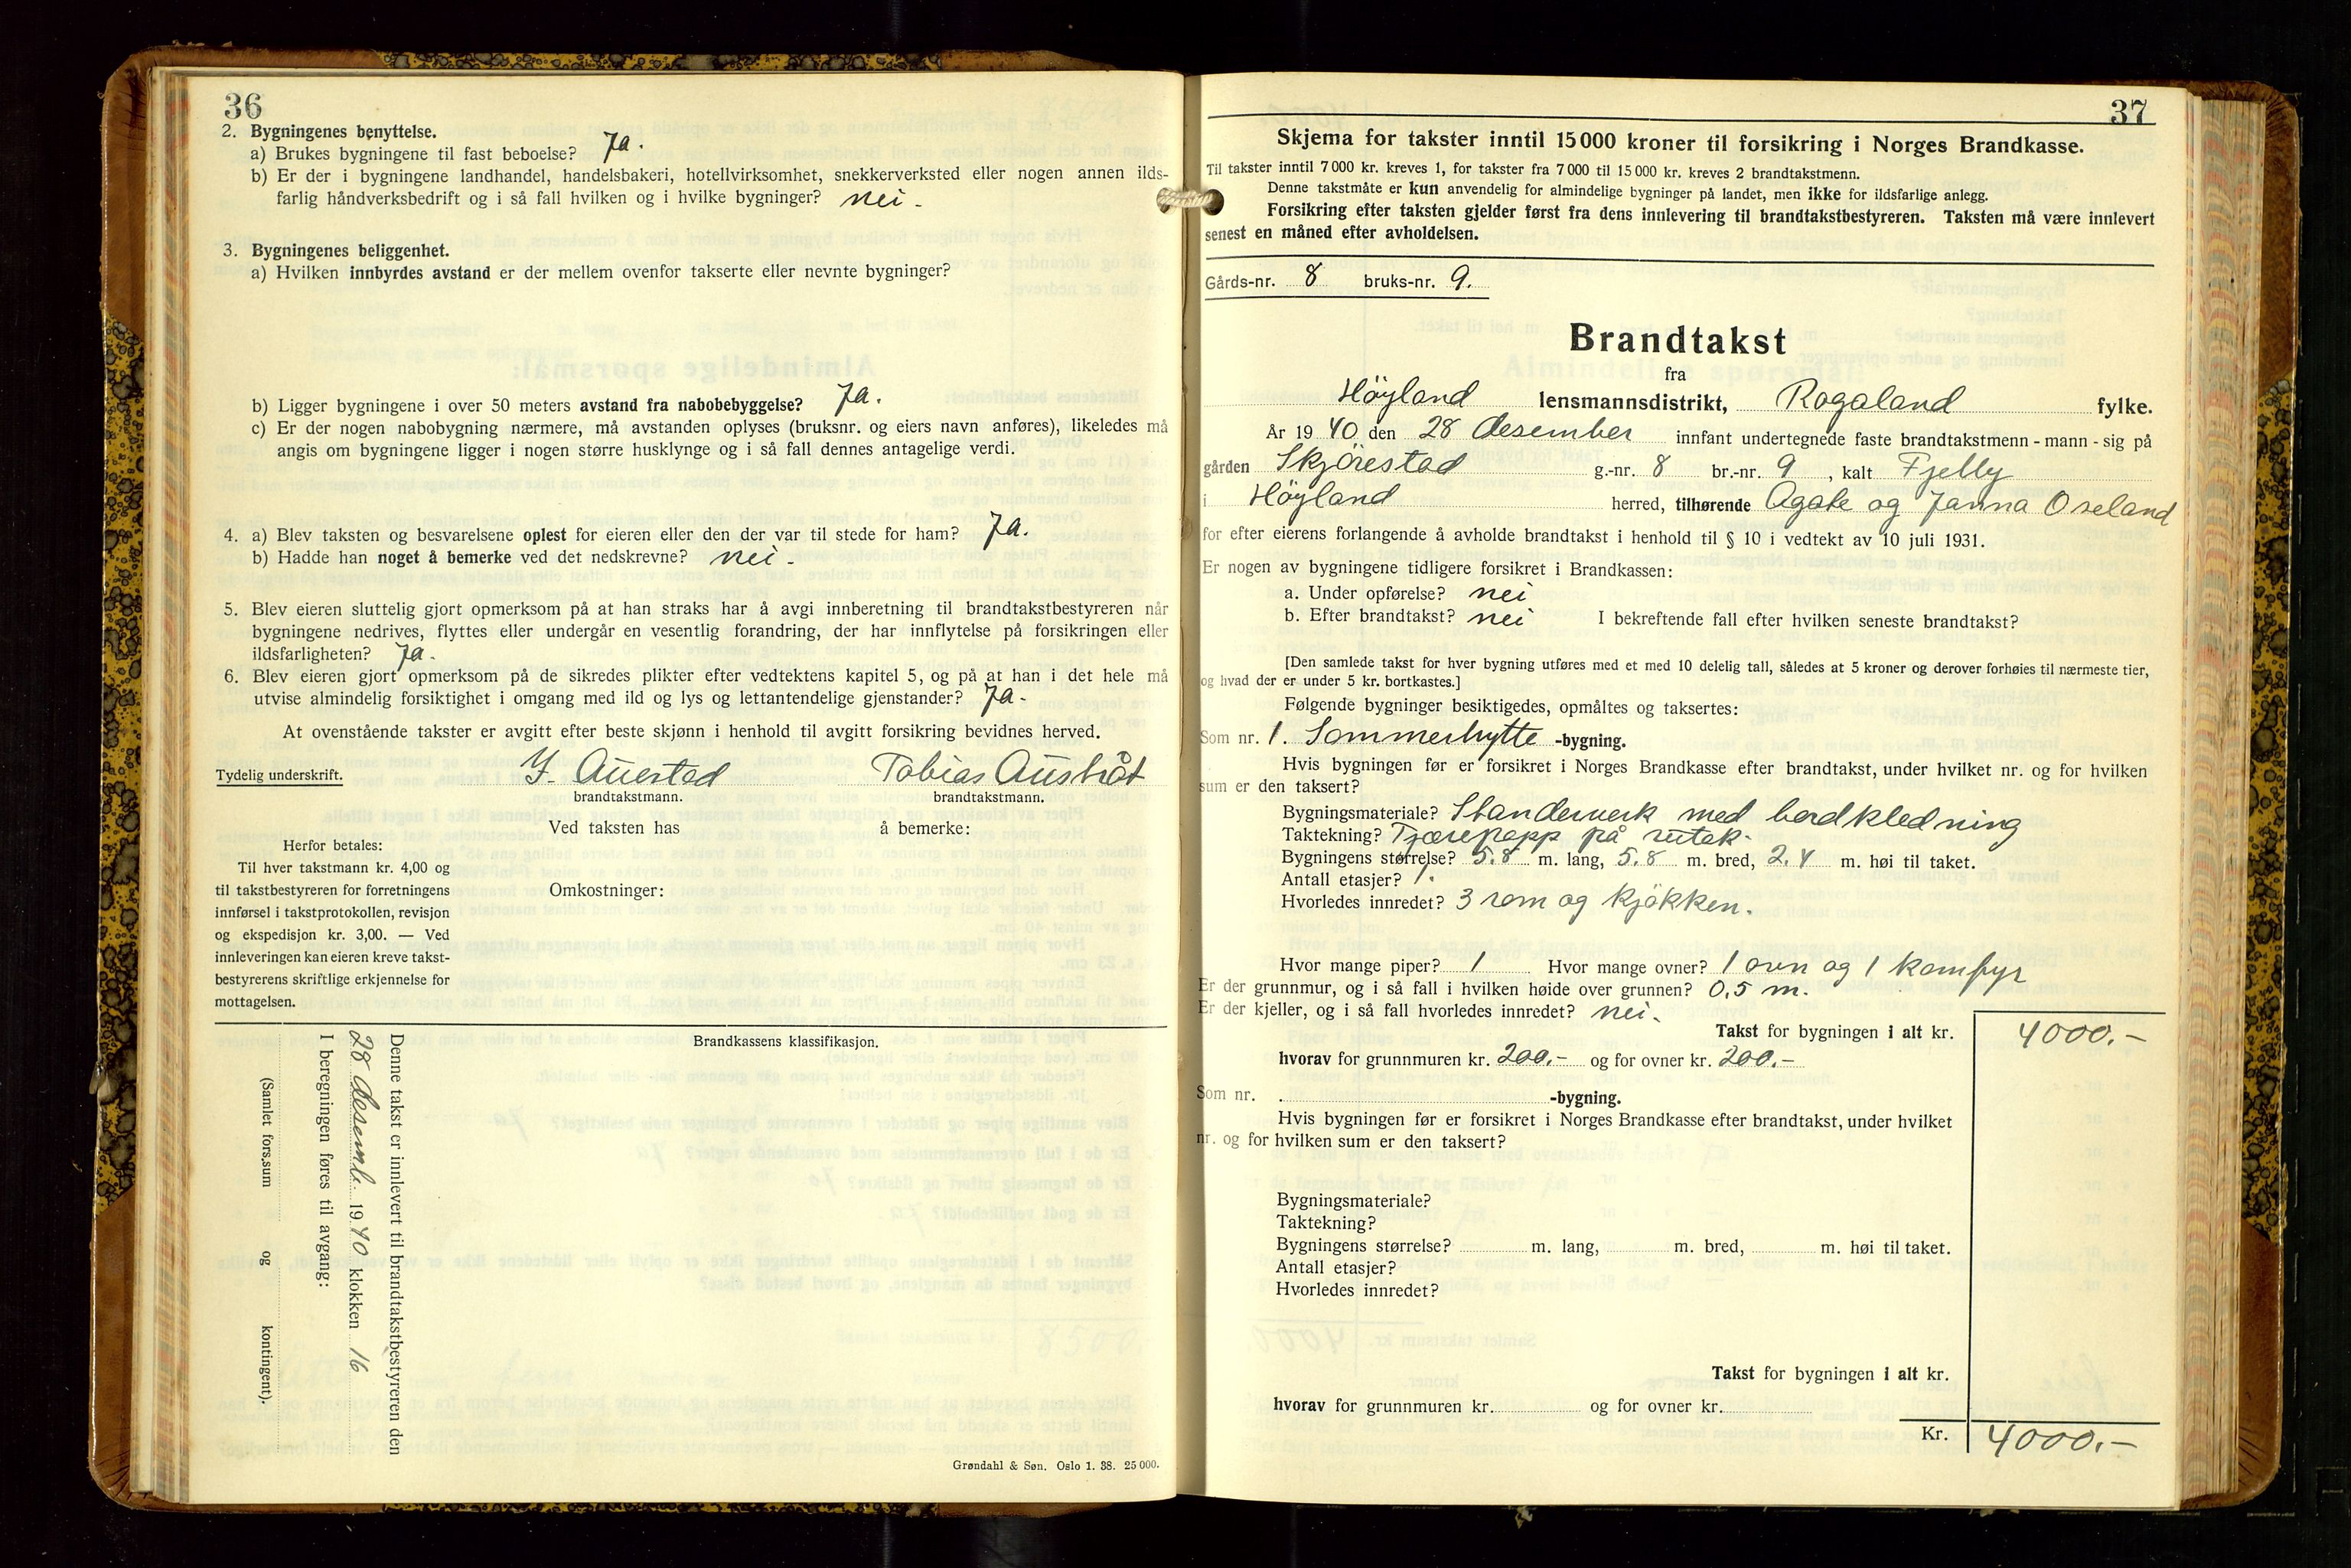 36
2. Bygningenes benyttelse.
a) Brukes bygningene til fast beboelse? Ja.
b) Er der i bygningene landhandel, handelsbakeri, hotellvirksomhet, snekkerverksted eller nogen annen ilds-
farlig håndverksbedrift og i så fall hvilken og i hvilke bygninger? nei.
3. Bygningenes beliggenhet.
a) Hvilken innbyrdes avstand er der mellem ovenfor takserte eller nevnte bygninger?
b) Ligger bygningene i over 50 meters avstand fra nabobebyggelse? Ja.
c) Er der nogen nabobygning nærmere, må avstanden oplyses (bruksnr. og eiers navn anføres), likeledes må
angis om bygningene ligger i nogen større husklynge og i så fall dennes antagelige verdi.
4. a) Blev taksten og besvarelsene oplest for eieren eller den der var til stede for ham? Ja.
b) Hadde han noget å bemerke ved det nedskrevne? nei.
5. Blev eieren sluttelig gjort opmerksom på at han straks har å avgi innberetning til brandtakstbestyreren når
bygningene nedrives, flyttes eller undergår en vesentlig forandring, der har innflytelse på forsikringen eller
ildsfarligheten? Ja.
6. Blev eieren gjort opmerksom på de sikredes plikter efter vedtektens kapitel 5, og på at han i det hele må
utvise almindelig forsiktighet i omgang med ild og lys og lettantendelige gjenstander? Ja.
At ovenstående takster er avgitt efter beste skjønn i henhold til avgitt forsikring bevidnes herved.
Tydelig underskrift. Y. Auestad Tobias Austråt
brandtakstmann. brandtakstmann.
Ved taksten has å bemerke:
Herfor betales:
Til hver takstmann kr. 4,00 og
til takstbestyreren for forretningens
innførsel i takstprotokollen, revisjon
og ekspedisjon kr. 3,00. — Ved
innleveringen kan eieren kreve takst-
bestyrerens skriftlige erkjennelse for
mottagelsen.
Omkostninger:
Brandkassens klassifikasjon.
Denne takst er innlevert til brandtakstbestyreren den
28 desemb. 1940 klokken 16
I beregningen føres til avgang:
(Samlet fors.sum og kontingent).
Grøndahl & Søn. Oslo 1. 38. 25 000.
37
Skjema for takster inntil 15 000 kroner til forsikring i Norges Brandkasse.
Til takster inntil 7 000 kr. kreves 1, for takster fra 7 000 til 15 000 kr. kreves 2 brandtakstmenn.
Denne takstmåte er kun anvendelig for almindelige bygninger på landet, men ikke for ildsfarlige anlegg.
Forsikring efter taksten gjelder først fra dens innlevering til brandtakstbestyreren. Taksten må være innlevert
senest en måned efter avholdelsen.
Gårds-nr. 8 bruks-nr. 9.
Brandtakst
fra
Höyland lensmannsdistrikt, Rogaland fylke.
År 1940 den 28 desember innfant undertegnede faste brandtakstmenn - mann - sig på
gården Skjörestad g.-nr. 8 br.-nr. 9, kalt Fjelly
i Höyland herred, tilhørende Agate og Janna Oseland
for efter eierens forlangende å avholde brandtakst i henhold til § 10 i vedtekt av 10 juli 1931.
Er nogen av bygningene tidligere forsikret i Brandkassen:
a. Under opførelse? nei
b. Efter brandtakst? nei I bekreftende fall efter hvilken seneste brandtakst?
[Den samlede takst for hver bygning utføres med et med 10 delelig tall, således at 5 kroner og derover forhøies til nærmeste tier,
og hvad der er under 5 kr. bortkastes.]
Følgende bygninger besiktigedes, opmåltes og taksertes:
Som nr. 1. Sommerhytte -bygning.
Hvis bygningen før er forsikret i Norges Brandkasse efter brandtakst, under hvilket nr. og for hvilken
sum er den taksert?
Bygningsmateriale? Standerverk med bordkledning
Taktekning? Tjærepapp på sutak.
Bygningens størrelse? 5.8 m. lang, 5.8 m. bred, 2.4 m. høi til taket.
Antall etasjer? 1.
Hvorledes innredet? 3 rom og kjökken.
Hvor mange piper? 1 Hvor mange ovner? 1 ovn og 1 komfyr
Er der grunnmur, og i så fall i hvilken høide over grunnen? 0,5 m.
Er der kjeller, og i så fall hvorledes innredet? nei.
Takst for bygningen i alt kr. 4000.-
hvorav for grunnmuren kr. 200.- og for ovner kr. 200.-
Som nr. -bygning.
Hvis bygningen før er forsikret i Norges Brandkasse efter brandtakst, under hvilket
nr. og for hvilken sum er den taksert?
Bygningsmateriale?
Taktekning?
Bygningens størrelse? m. lang, m. bred, m. høi til taket.
Antall etasjer?
Hvorledes innredet?
Takst for bygningen i alt kr.
hvorav for grunnmuren kr. og for ovner kr.
Kr. 4000.-